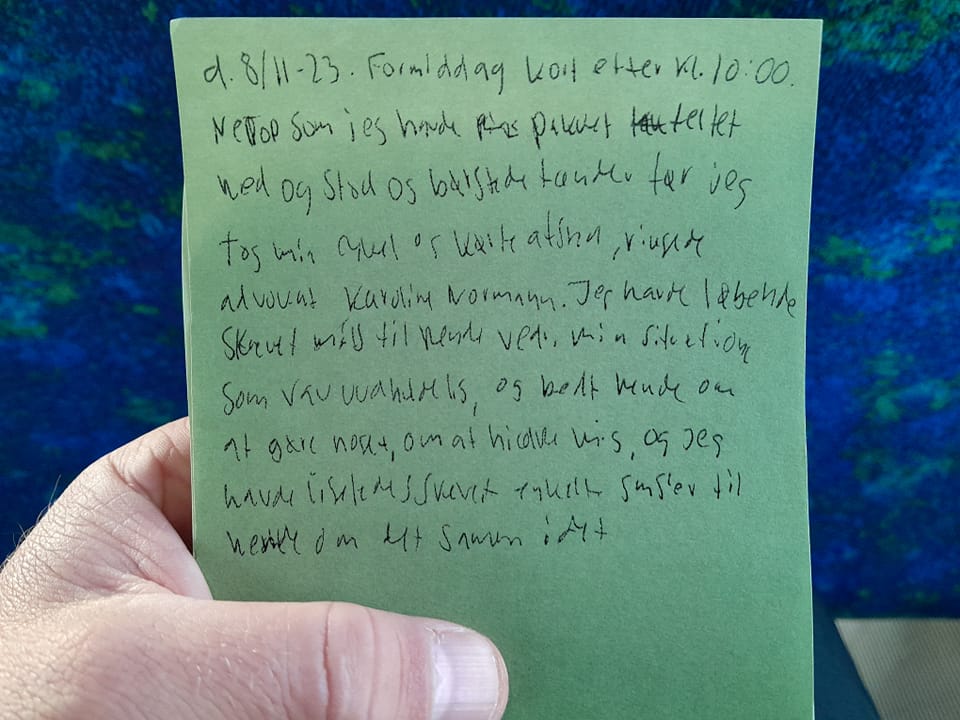 d. 8/11-23. Formiddag kort efter kl. 10:00.
Netop som jeg havde pakket teltet
ned og stod og børstede tænder før jeg
tog min cykel og kørte afsted, ringede
advokat Karoline Normann. Jeg havde løbende
skrevet mails til hende vedr. min situation
som var uudholdelig, og bedt hende om
at gøre noget, om at hjælpe mig, og jeg
havde ligeledes skrevet enkelte sms'er til
hende om det samme idet